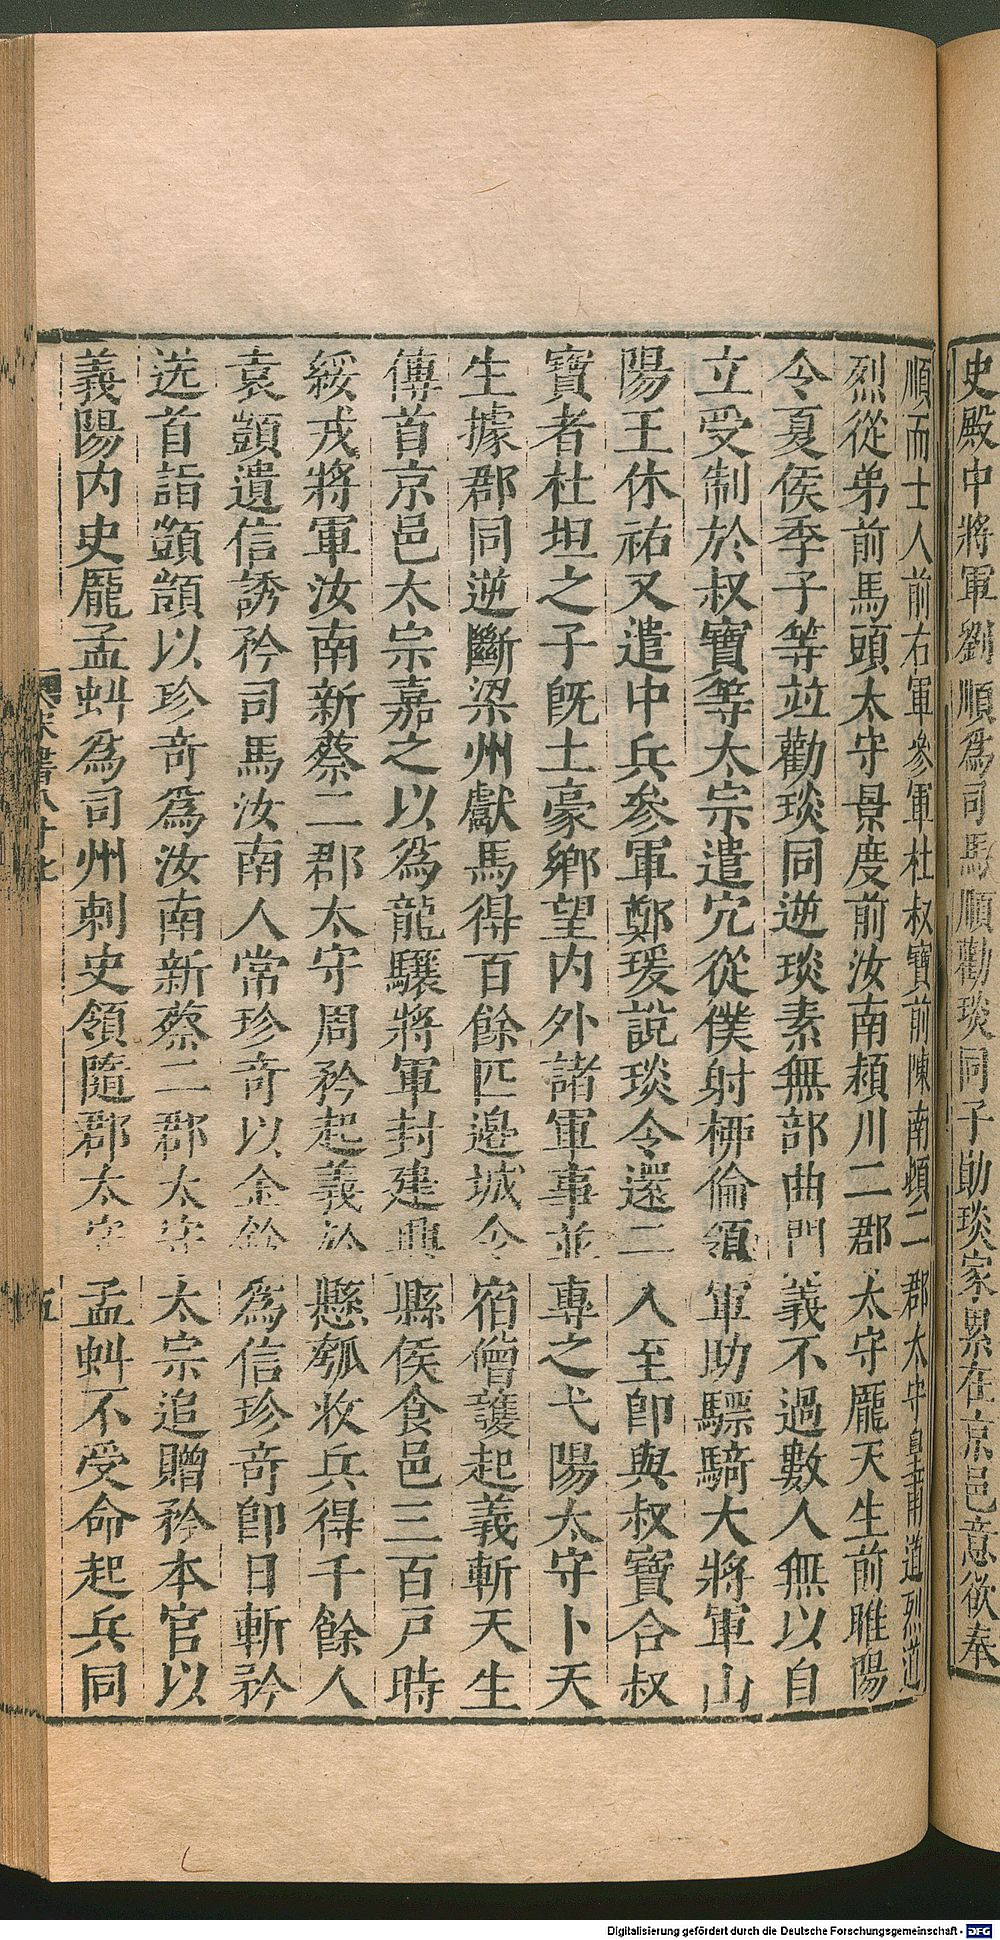 史殿中將軍劉順為司馬順勸琰同子勛琰家累在京邑意欲奉
順而士人前右軍參軍杜叔寶前陳南頓二郡太守皇甫道烈道
烈從弟前馬頭太守景度前汝南潁川二郡太守龐天生前睢陽
令夏侯季子等竝勸琰同逆琰素無部曲門義不過數人無以自
立受制於叔寶等太宗遣冗從僕射柳倫領軍助驃騎大將軍山
陽王休祐又遣中兵參軍鄭瑗說琰令還二人至即與叔寶合叔
寶者杜坦之子旣土豪鄉望內外諸軍事並專之弋陽太守卜天
生據郡同逆斷梁州獻馬得百餘匹邉城令宿僧護起義斬天生
傳首京邑太宗嘉之以為龍驤將軍封建興縣侯食邑三百戸時
綏戎將軍汝南新蔡二郡太守周矜起義於懸瓠收兵得千餘人
袁顗遺信誘矜司馬汝南人常珍奇以金鈴為信珍奇即日斬矜
送首詣顗顗以珍奇為汝南新蔡二郡太守太宗追贈矜本官以
義陽內史龐孟虯為司州刺史領隨郡太守孟虯不受命起兵同
宋書八十七
五
Digitalisierung gefördert durch die Deutsche Forschungsgemeinschaft - DFG